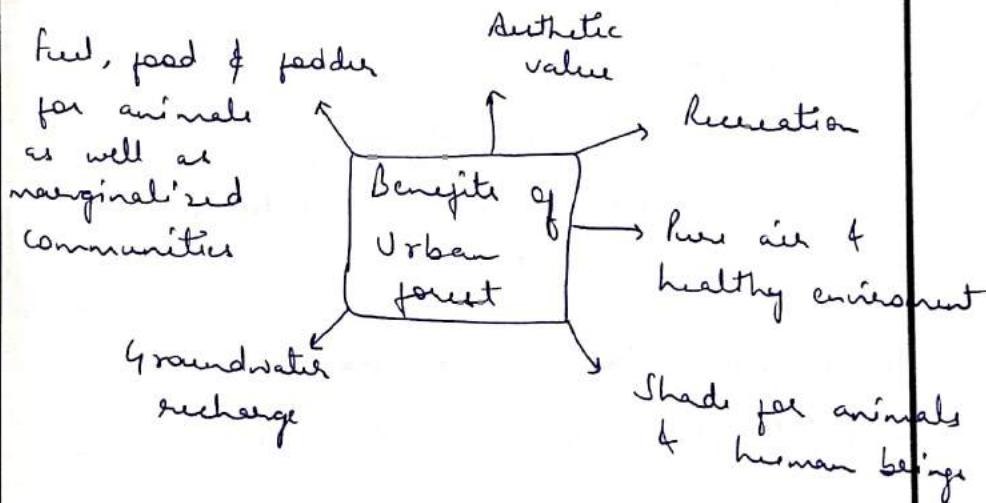 Aesthetic
value
Fuel, food & fodder
for animals
as well as
marginalized
communities
Recreation
Benefits of
Urban
forest
Pure air &
healthy enviroment
Groundwater
recharge
Shade for animals
& human beings